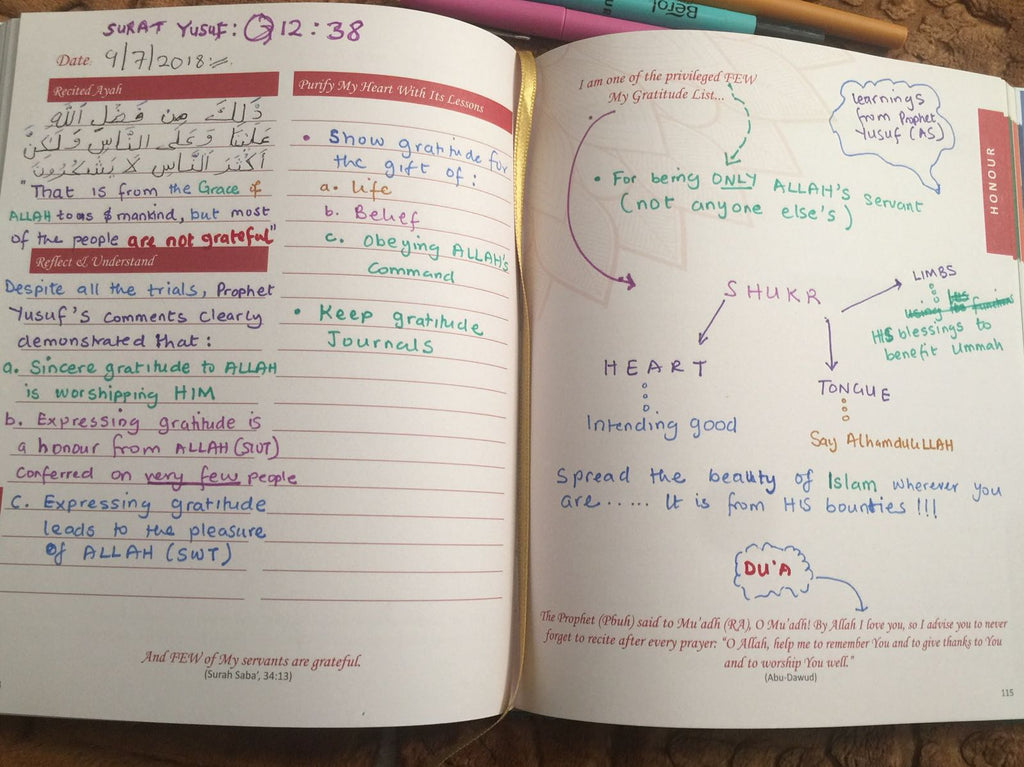 Berol
SURAT YUSUF: 12:38
Date 9/7/2018
Recited Ayah
ذَٰلِكَ مِن فَضْلِ اللَّهِ
عَلَيْنَا وَعَلَى النَّاسِ وَلَٰكِنَّ
أَكْثَرَ النَّاسِ لَا يَشْكُرُونَ
"That is from the Grace of
ALLAH to us & mankind, but most
of the people are not grateful"
Reflect & Understand
Despite all the trials, Prophet
Yusuf's comments clearly
demonstrated that:
a. Sincere gratitude to ALLAH
is worshipping HIM
b. Expressing gratitude is
a honour from ALLAH (SWT)
conferred on very few people
C. Expressing gratitude
leads to the pleasure
of ALLAH (SWT)
Purify My Heart With Its Lessons
• Show gratitude for
the gift of:
a. life
b. Belief
c. Obeying ALLAH's
Command
• Keep gratitude
Journals
And FEW of My servants are grateful.
(Surah Saba', 34:13)
I am one of the privileged FEW
My Gratitude List...
learnings
from Prophet
Yusuf (AS)
HONOUR
• For being ONLY ALLAH'S servant
(not anyone else's)
SHUKR
LIMBS
using his function
HIS blessings to
benefit Ummah
HEART
Intending good
TONGUE
Say AlhamduliLLAH
Spread the beauty of Islam wherever you
are...... It is from HIS bounties !!!
DU'A
The Prophet (Pbuh) said to Mu'adh (RA), O Mu'adh! By Allah I love you, so I advise you to never
forget to recite after every prayer: "O Allah, help me to remember You and to give thanks to You
and to worship You well."
(Abu-Dawud)
115